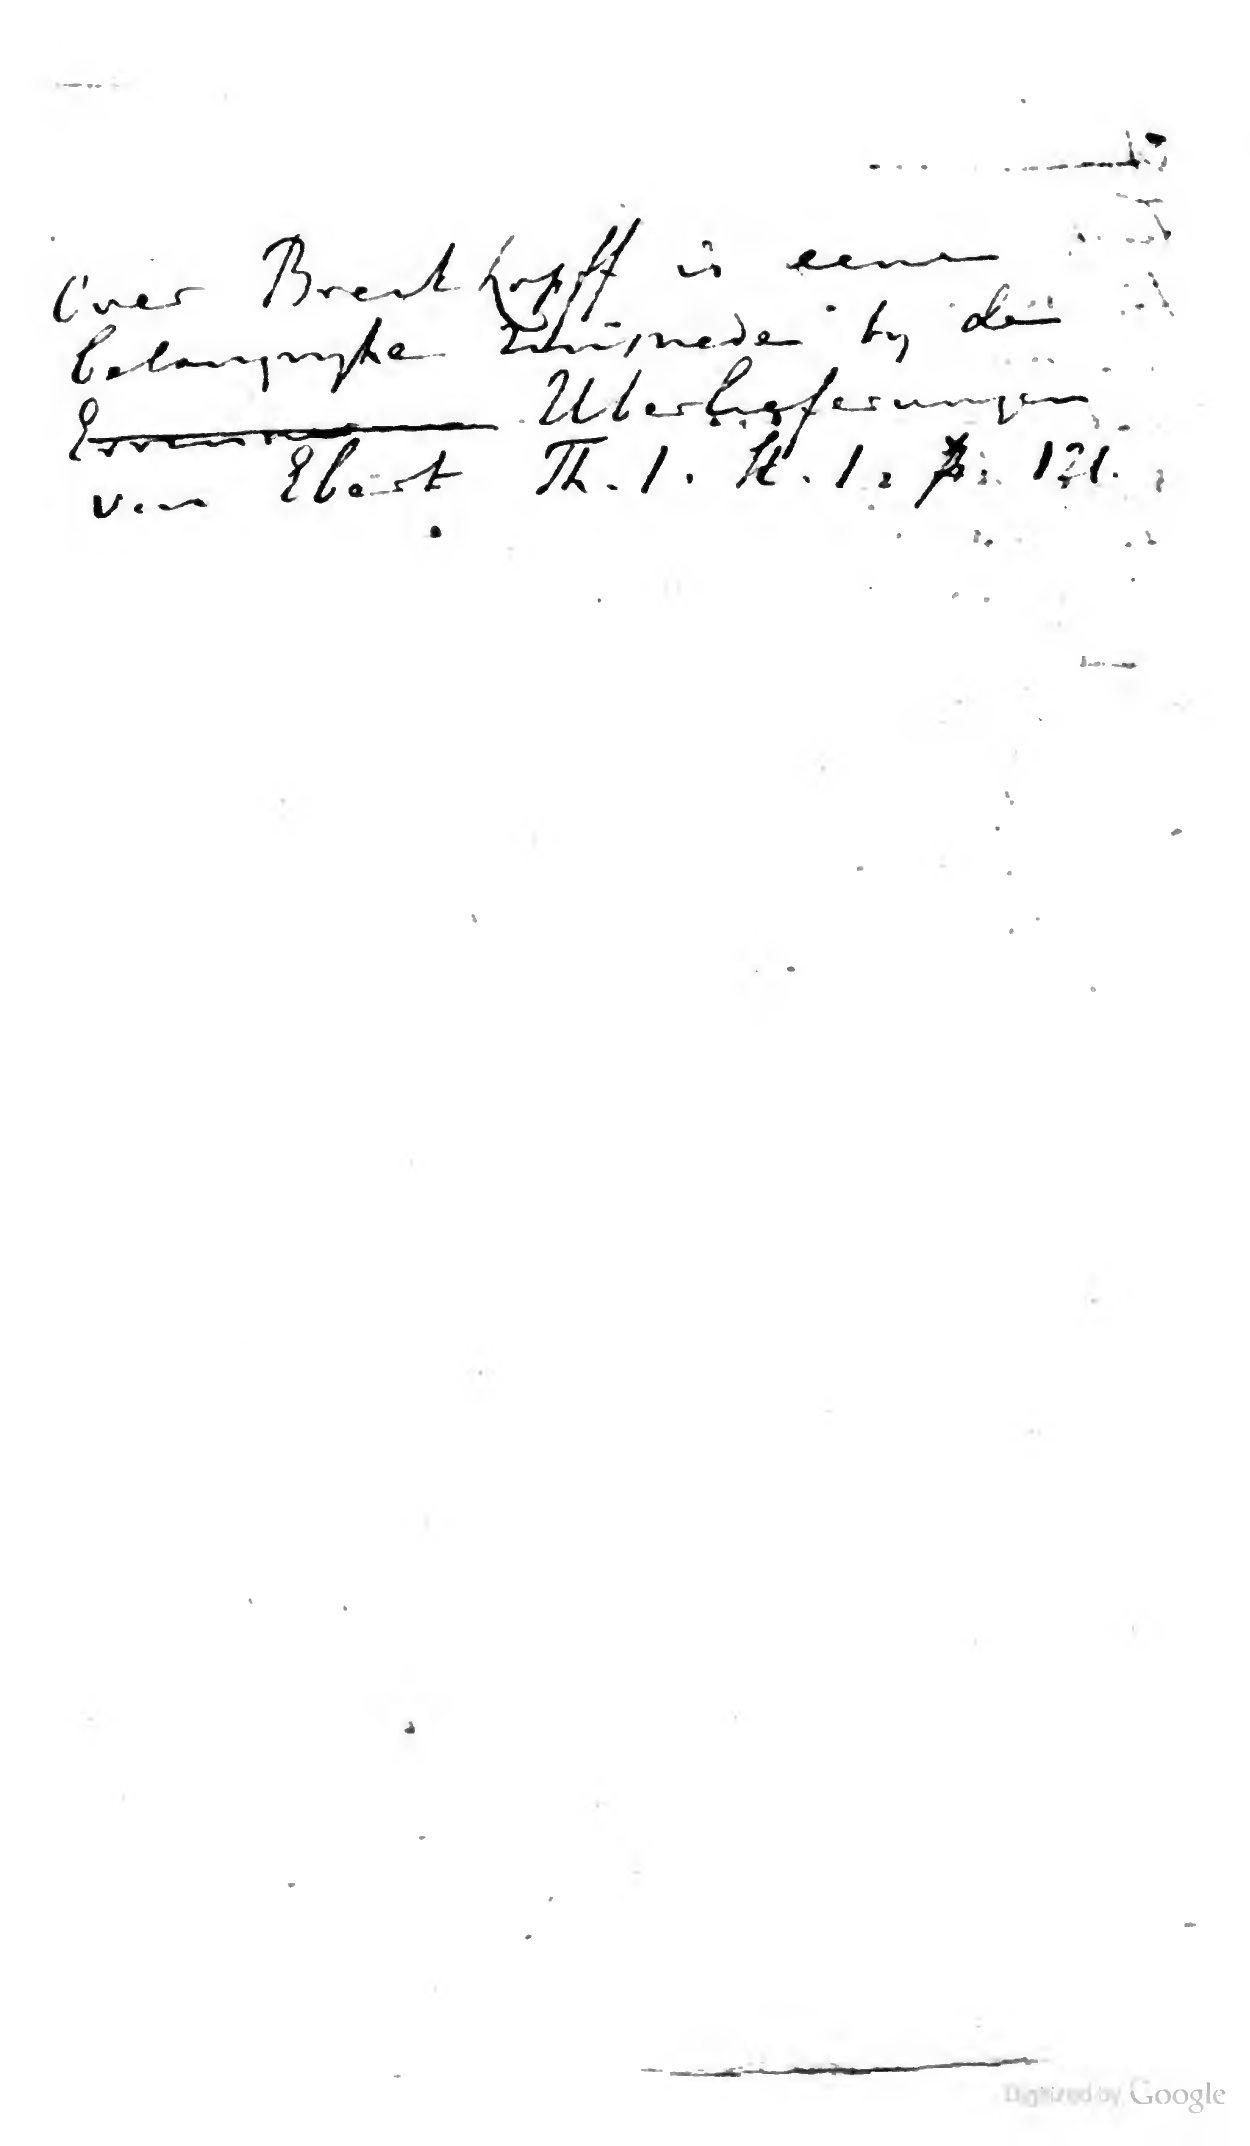 Over Breitkopff is eene
belangryke by de
Uberlieferungen
van Ebert Th. 1. St. 1. p. 121.
Digitized by Google